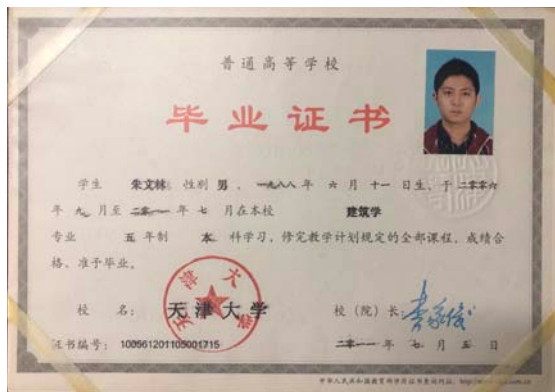 普通高等学校
毕业证书
学生 朱文林 性别 男 , 一九八八 年 六 月 十一 日生, 于 二零零六
年 九 月至 二零一一 年 七 月在本校 建筑学
专业 五 年制 本 科学习, 修完教学计划规定的全部课程, 成绩合
格, 准予毕业。
校 名: 天津大学 校(院)长:
天津大学
证书编号: 100561201105001715 二零一一 年 七 月 五 日
中华人民共和国教育部学历证书查询网址: